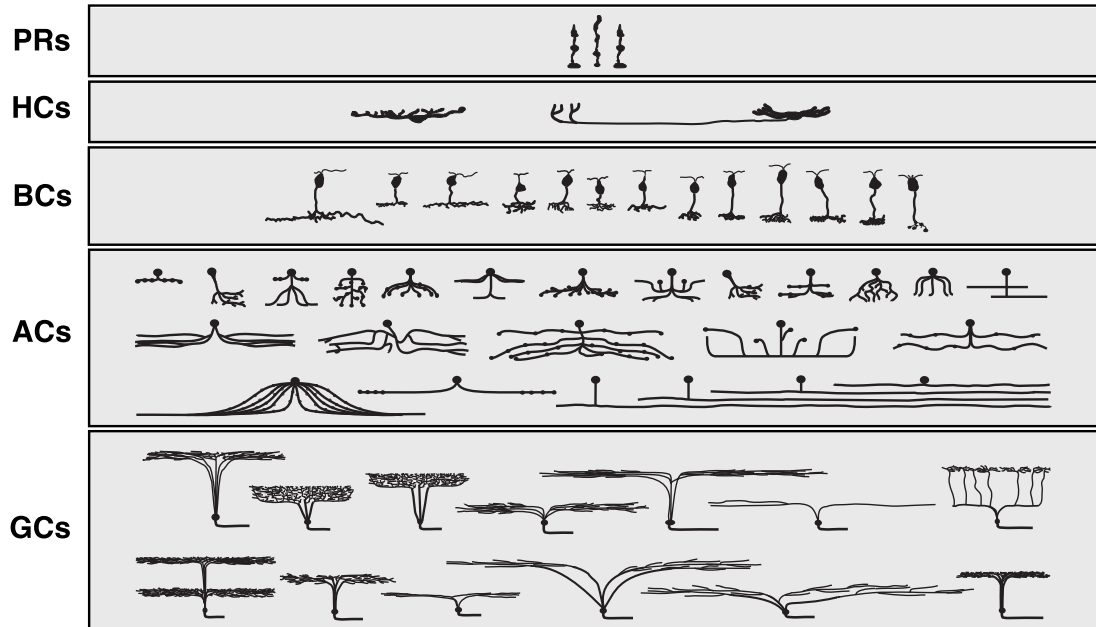 PRs
HCs
BCs
ACs
GCs